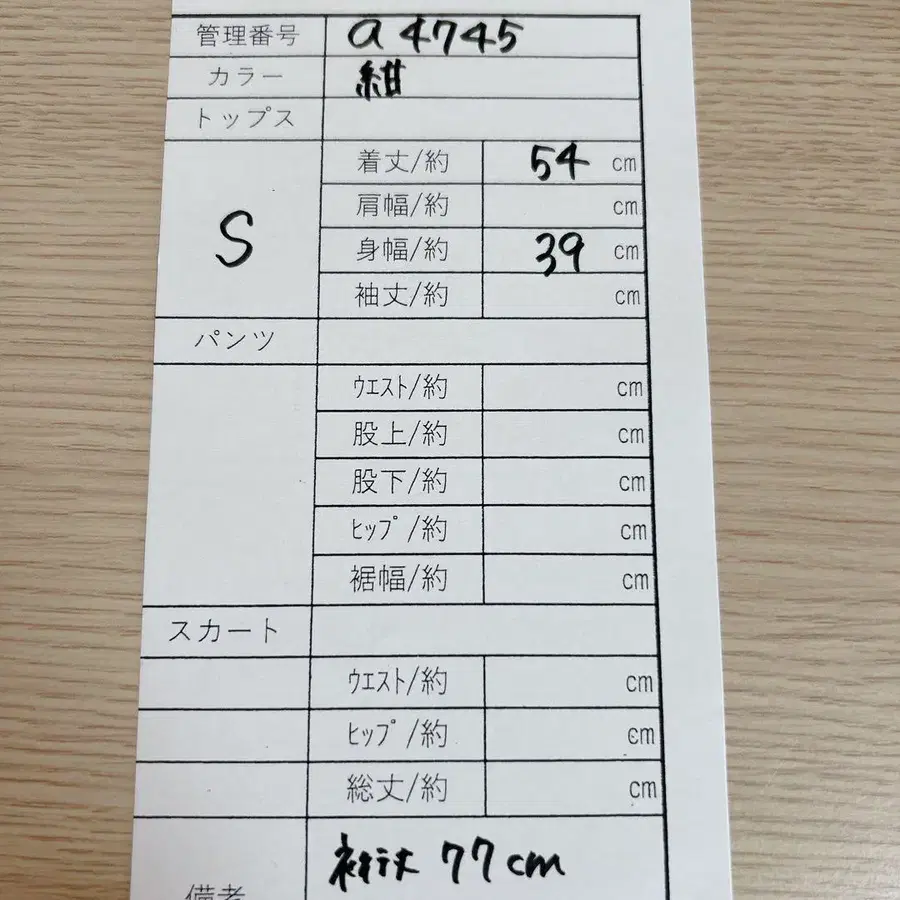 管理番号 a 4745
カラー 紺
トップス
S
着丈/約 54 cm
肩幅/約 cm
身幅/約 39 cm
袖丈/約 cm
パンツ
ウエスト/約 cm
股上/約 cm
股下/約 cm
ヒップ/約 cm
裾幅/約 cm
スカート
ウエスト/約 cm
ヒップ/約 cm
総丈/約 cm
備考 裄丈 77cm